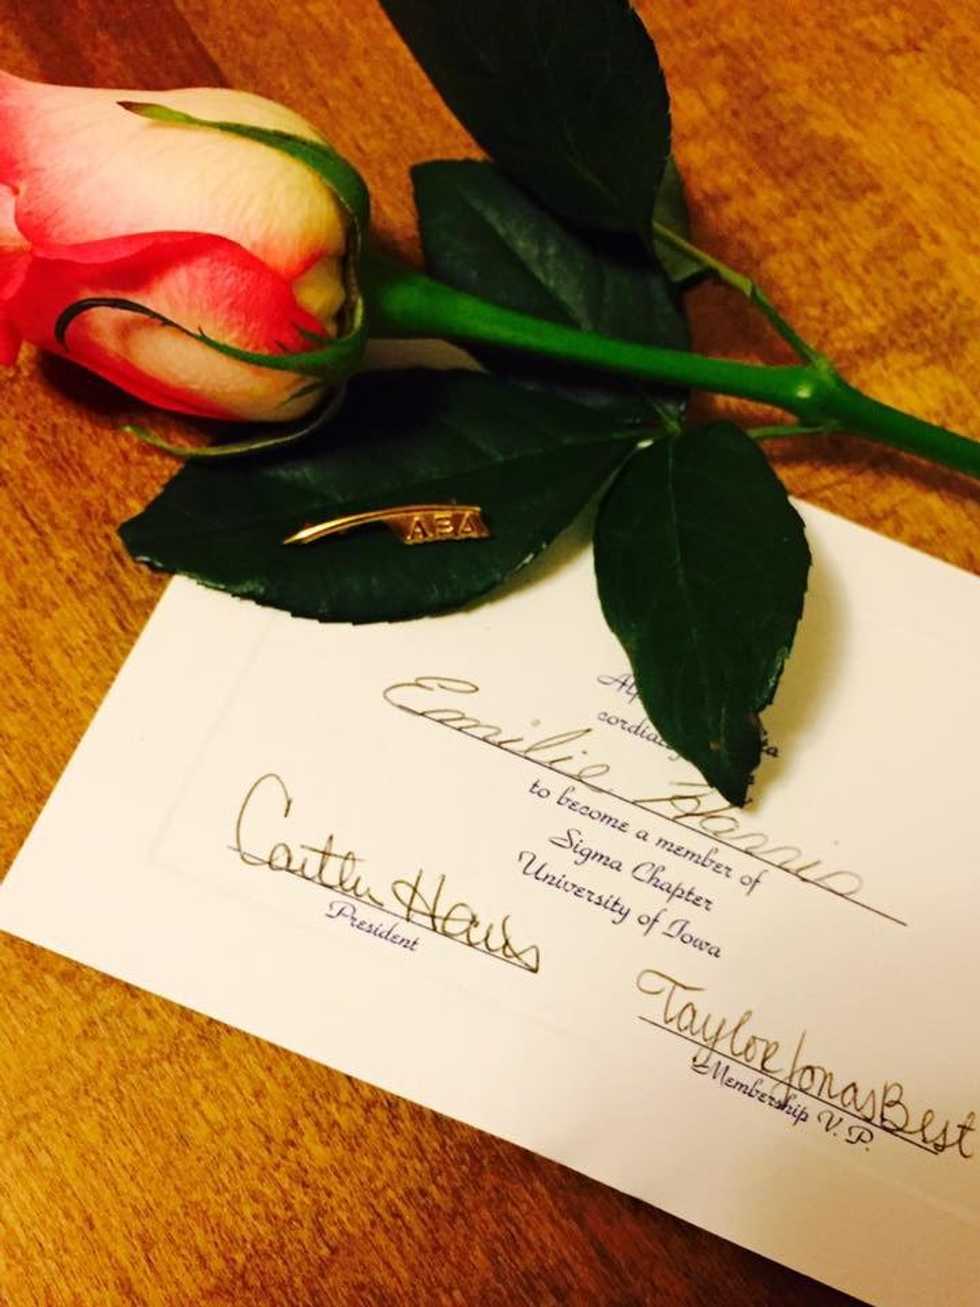 ΑΞΔ
Alp
cordial
Emilie Harris
to become a member of
Sigma Chapter
University of Iowa
Caitlin
President
Taylor Jonas Best
Membership V.P.